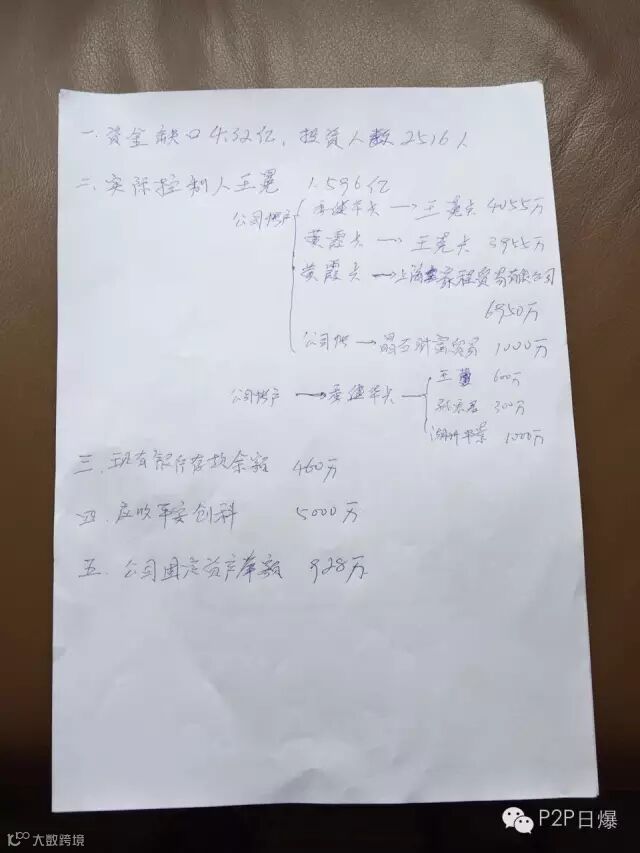 一.资金缺口4.32亿,投资人数2516人
二.实际控制人王晃 1.596亿
公司帐户 健华卡→王晃卡4055万
黄霞卡→王晃卡3955万
黄霞卡→上海 程贸易有限公司
6950万
公司帐→晶古财富贸易1000万
公司帐户→健华卡 王 600万
张 300万
湖州 1000万
三.现有银行存款余额 460万
四.应收平安创科 5000万
五.公司固定资产 额 928万
P2P日爆
大数跨境